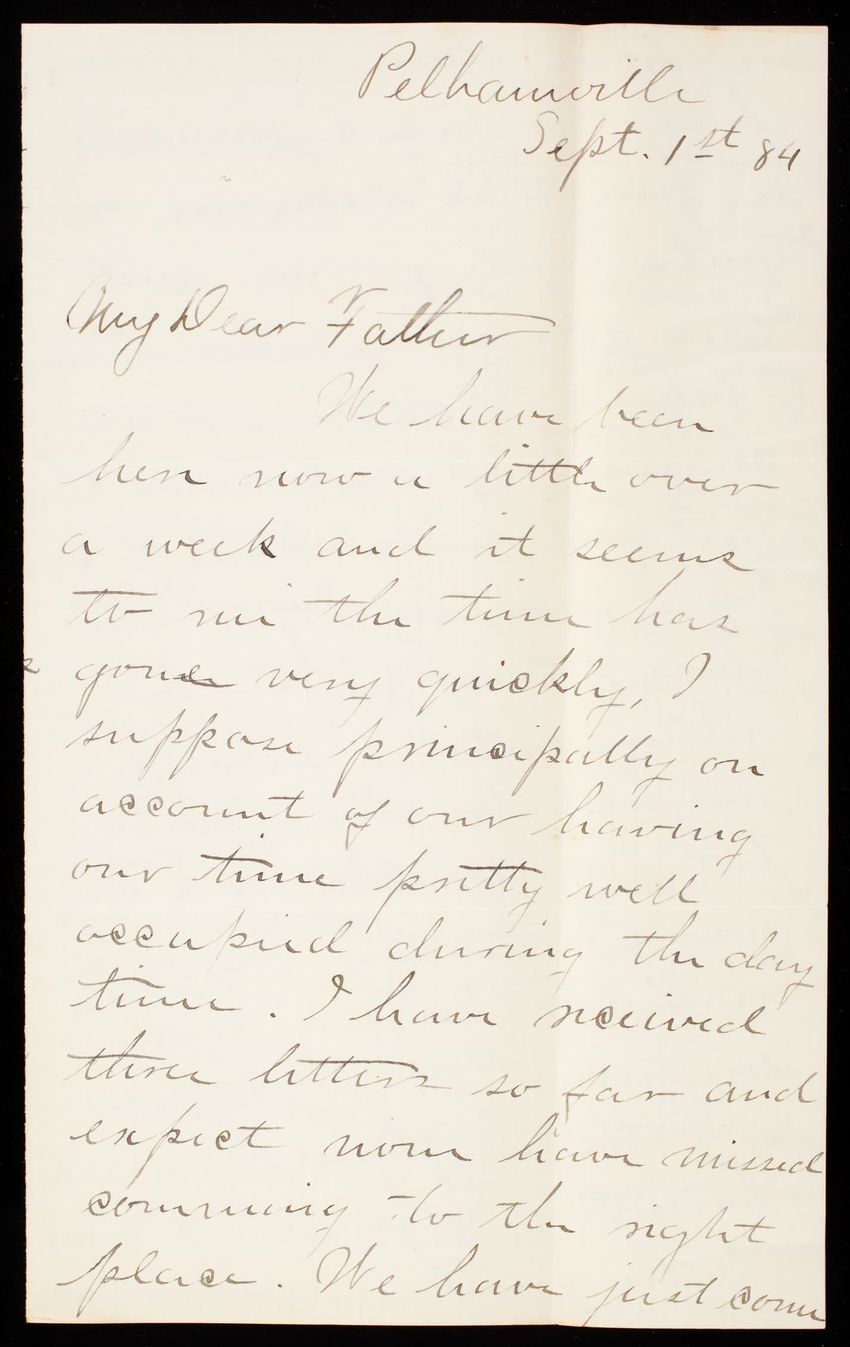 Pelhamville
Sept. 1st 84
My Dear Father
We have been
here now a little over
a week and it seems
to me the time has
gone very quickly, I
suppose principally on
account of our having
our time pretty well
occupied during the day
time. I have received
three letters so far and
expect none have missed
comming to the right
place. We have just come